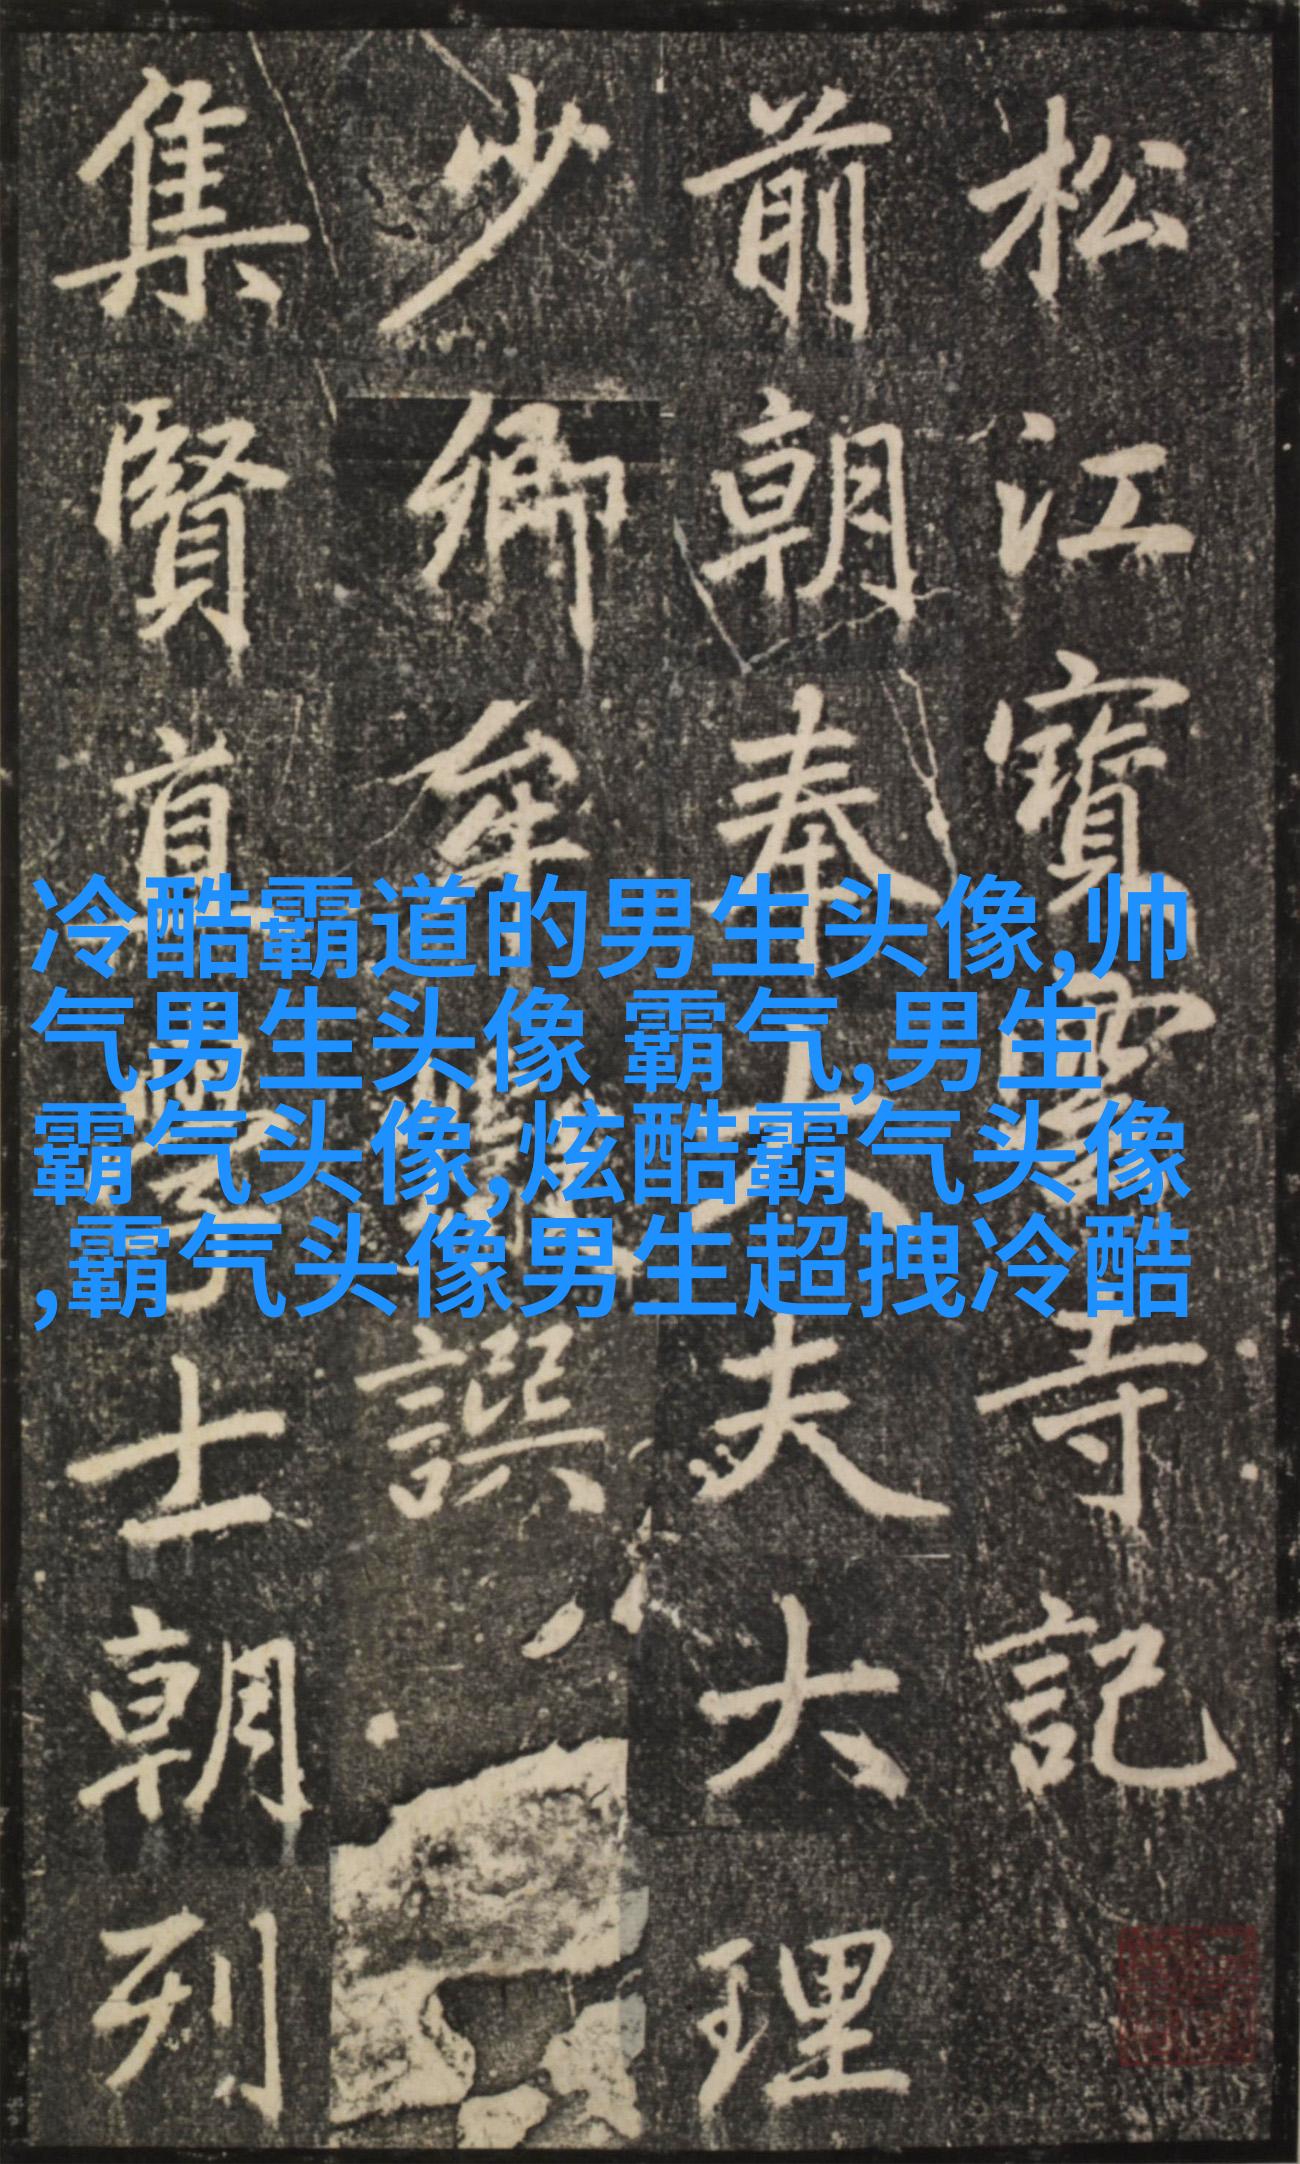 松江寶雲寺記
前朝奉大夫大理
少卿牟巘譔
集賢直學士朝列
冷酷霸道的男生头像,帅
气男生头像 霸气,男生
霸气头像,炫酷霸气头像
,霸气头像男生超拽冷酷